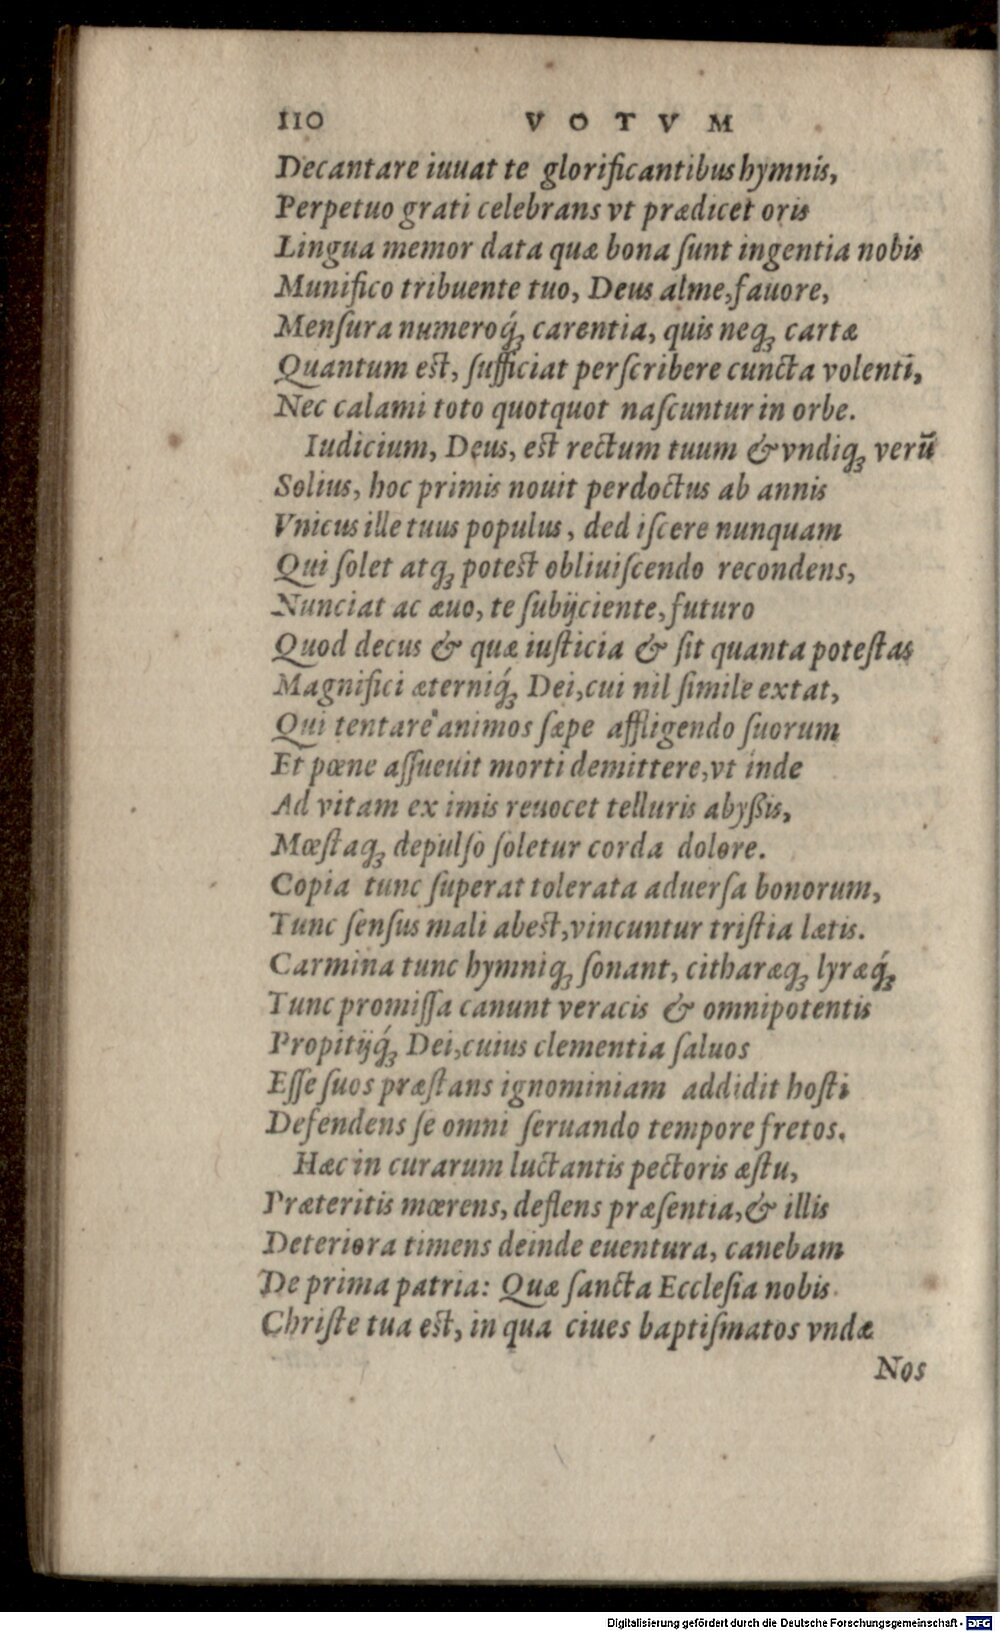 110 VOTVM
Decantare iuuat te glorificantibus hymnis,
Perpetuo grati celebrans vt prædicet oris
Lingua memor data quæ bona ſunt ingentia nobis
Munifico tribuente tuo, Deus alme, fauore,
Menſura numeroq́ꝫ carentia, quis neqꝫ cartæ
Quantum eſt, ſufficiat perſcribere cuncta volenti,
Nec calami toto quotquot naſcuntur in orbe.
Iudicium, Deus, eſt rectum tuum & vndiqꝫ verũ
Solius, hoc primis nouit perdoctus ab annis
Vnicus ille tuus populus, dediſcere nunquam
Qui ſolet atqꝫ poteſt obliuiſcendo recondens,
Nunciat ac æuo, te ſubijciente, futuro
Quod decus & quæ iuſticia & ſit quanta poteſtas
Magnifici æterniq́ꝫ Dei, cui nil ſimile extat,
Qui tentare animos ſæpe affligendo ſuorum
Et pœne aſſueuit morti demittere, vt inde
Ad vitam ex imis reuocet telluris abyßis,
Mœſtaqꝫ depulſo ſoletur corda dolore.
Copia tunc ſuperat tolerata aduerſa bonorum,
Tunc ſenſus mali abeſt, vincuntur triſtia lætis.
Carmina tunc hymniqꝫ ſonant, citharæqꝫ lyræq́ꝫ
Tunc promiſſa canunt veracis & omnipotentis
Propitijq́ꝫ Dei, cuius clementia ſaluos
Eſſe ſuos præſtans ignominiam addidit hoſti
Defendens ſe omni ſeruando tempore fretos.
Hæc in curarum luctantis pectoris æſtu,
Præteritis mœrens, deflens præſentia, & illis
Deteriora timens deinde euentura, canebam
De prima patria: Quæ ſancta Eccleſia nobis
Chriſte tua eſt, in qua ciues baptiſmatos vndæ
Nos
Digitalisierung gefördert durch die Deutsche Forschungsgemeinschaft - DFG